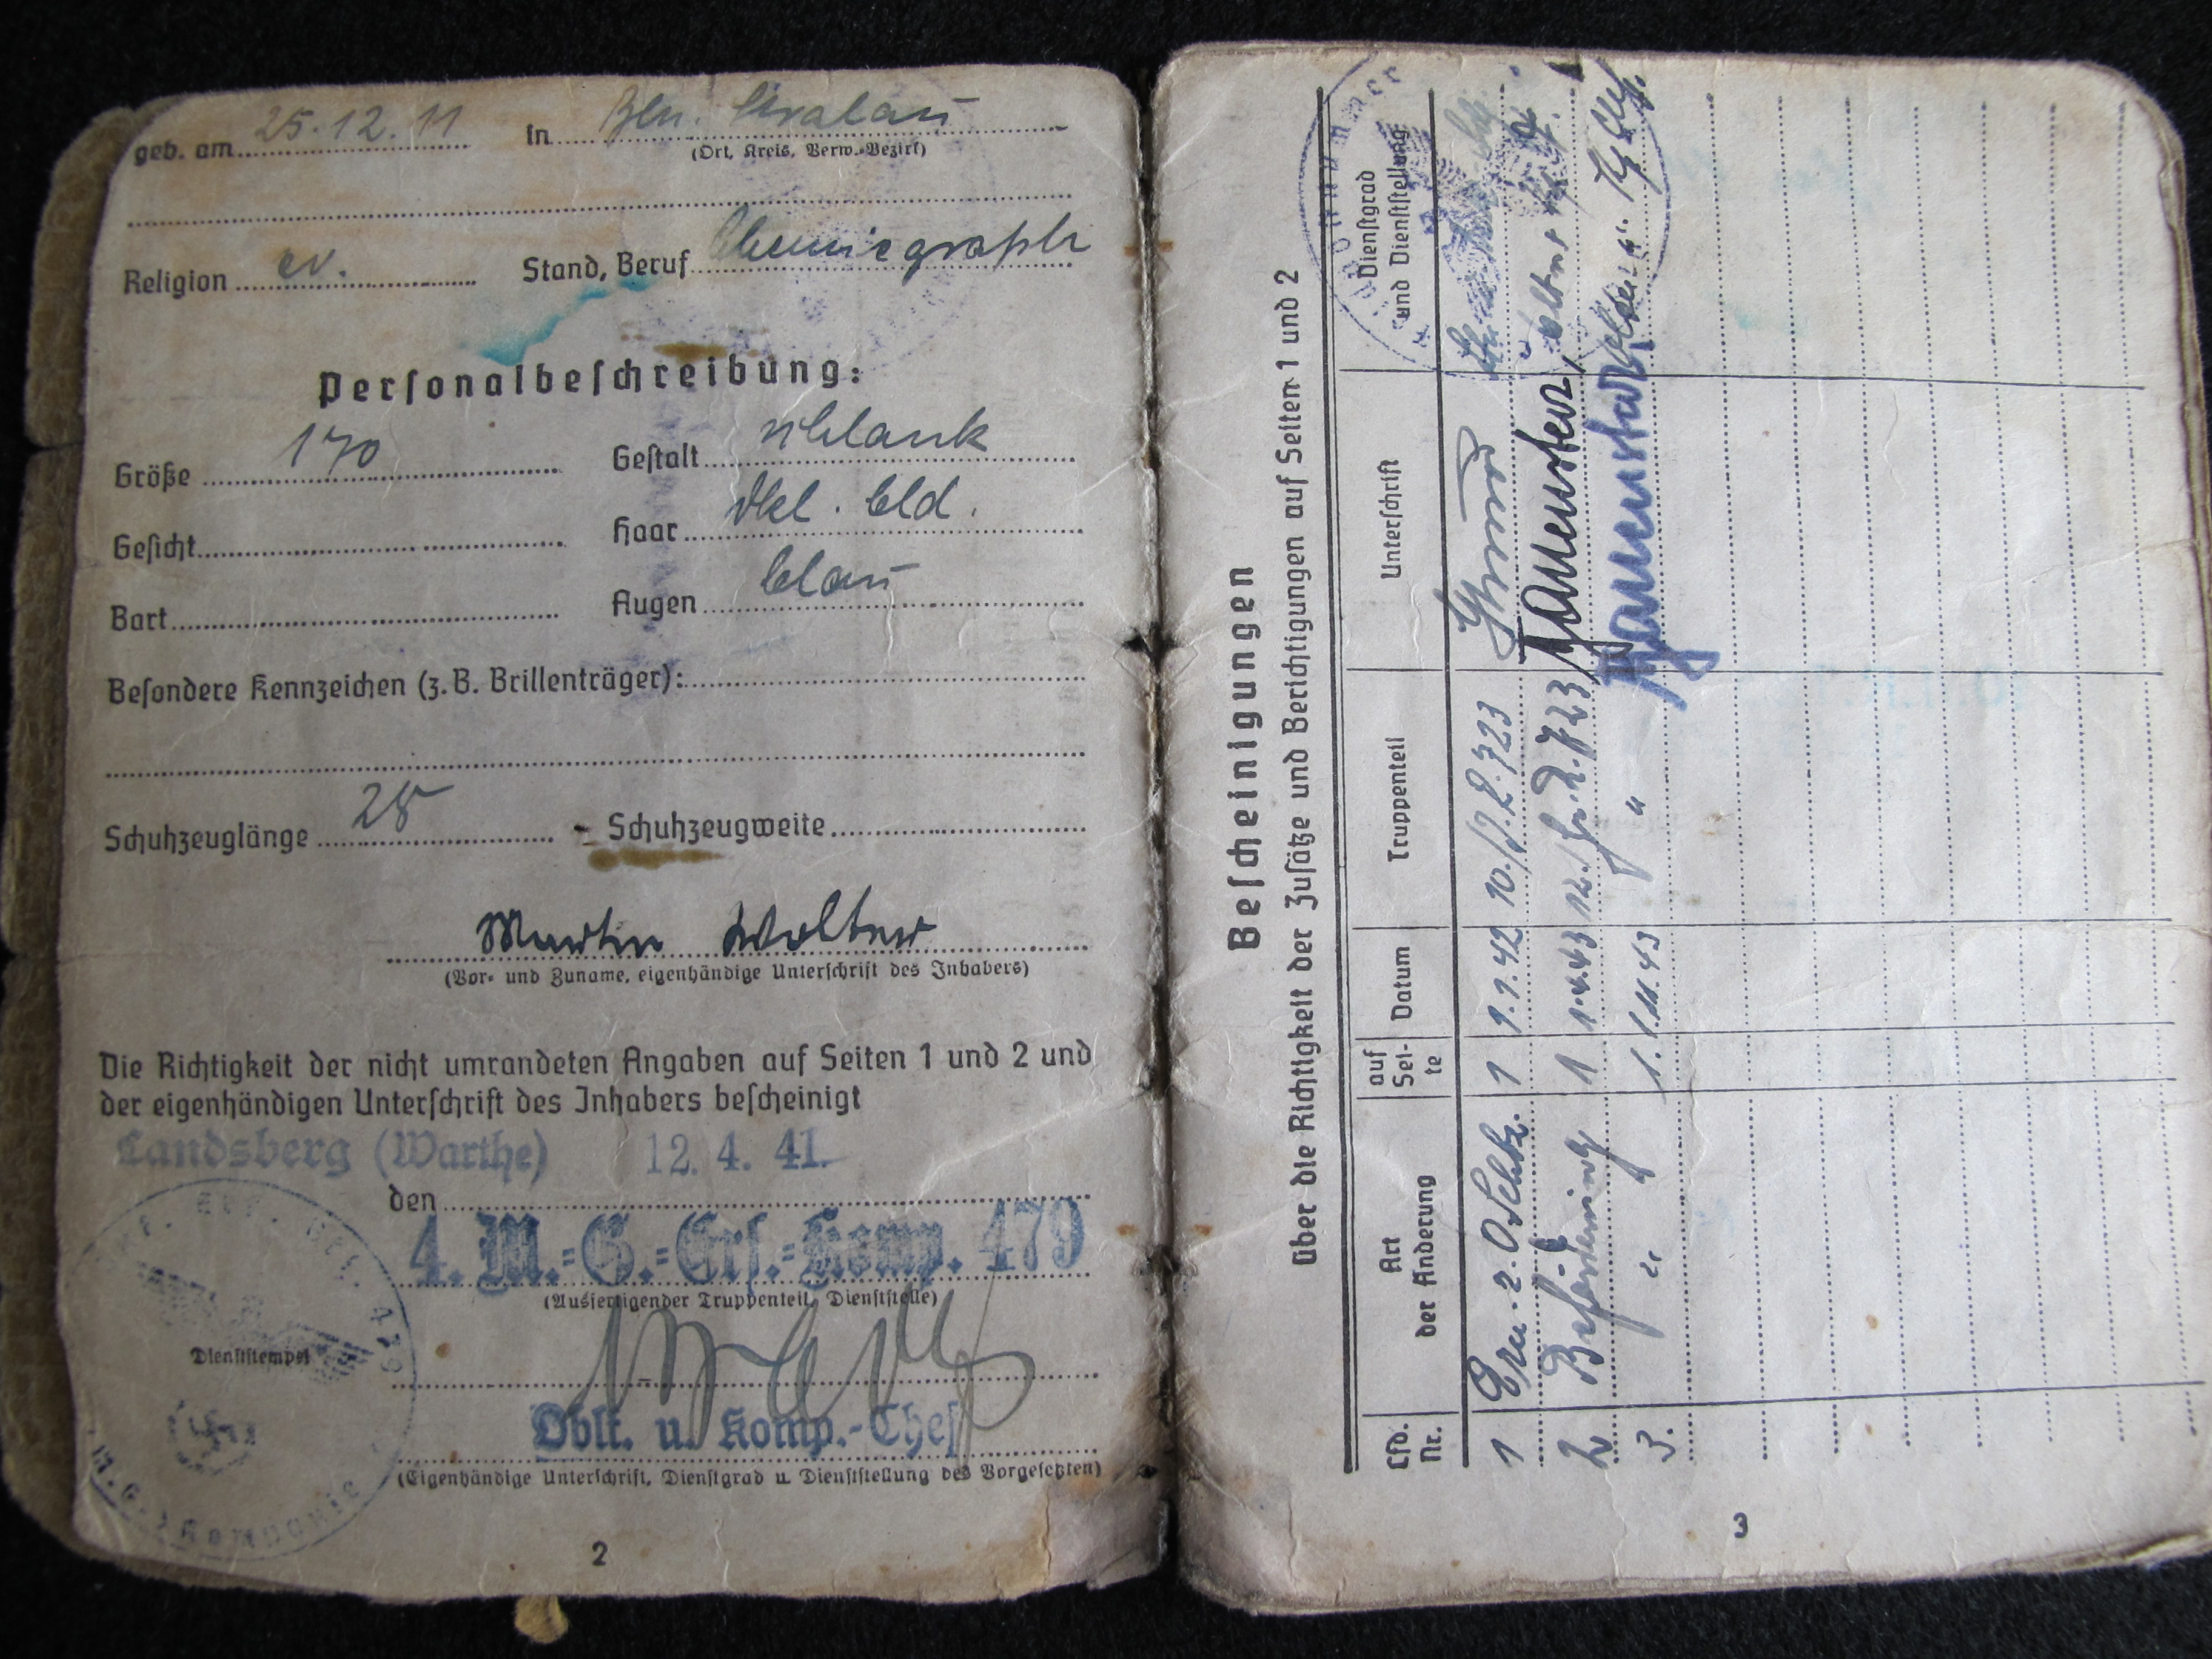 geb. am 25.12.11 in Bln. Stralau
(Ort, Kreis, Verw.-Bezirk)
Religion ev. Stand, Beruf Chemiegraph
Personalbeschreibung:
Größe 170 Gestalt schlank
Gesicht Haar dkl. bld.
Bart Augen blau
Besondere Kennzeichen (z. B. Brillenträger):
Schuhzeuglänge 28 Schuhzeugweite
Martin Wolter
(Vor- und Zuname, eigenhändige Unterschrift des Inhabers)
Die Richtigkeit der nicht umrandeten Angaben auf Seiten 1 und 2 und
der eigenhändigen Unterschrift des Inhabers bescheinigt
Landsberg (Warthe) 12. 4. 41.
den
4. M.=G.=Ers.=Komp. 479
(Ausfertigender Truppenteil, Dienststelle)
Dienststempel
Oblt. u. Komp.-Chef
(Eigenhändige Unterschrift, Dienstgrad u. Dienststellung des Vorgesetzten)
2
Bescheinigungen
über die Richtigkeit der Zusätze und Berichtigungen auf Seiten 1 und 2
Lfd. Nr. Art der Änderung auf Sei-te Datum Truppenteil Unterschrift Dienstgrad und Dienststellung
1 Ern. z. O Schtz. 1 1.9.42 10./J.R.723
2 Beförderung 1 1.4.43 12./Gr.R.723
3. " 1. 1.11.43 "
3